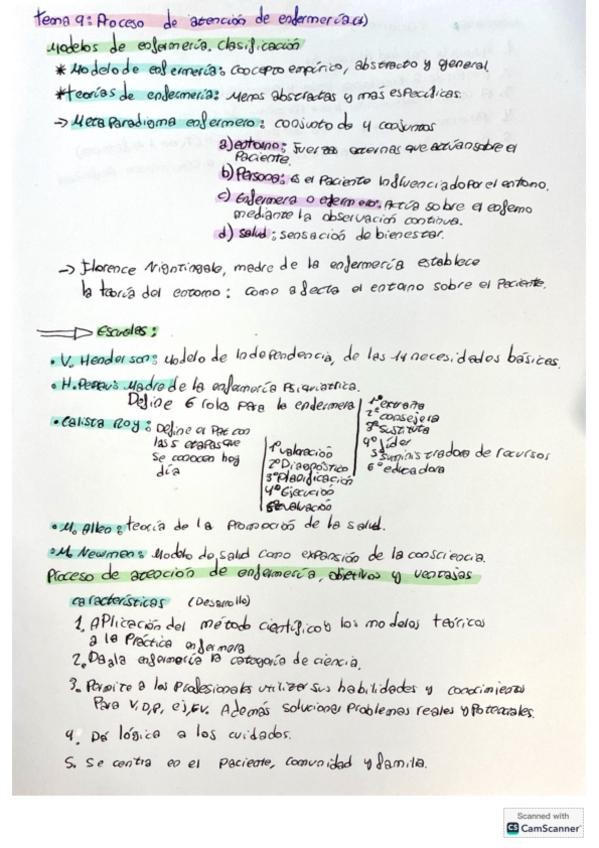 Tema 9: Proceso de atención de enfermería (I)
Modelos de enfermería. Clasificación
* Modelo de enfermería: concepto empírico, abstracto y general
* Teorías de enfermería: Menos abstractas y más específicas.
→ Metaparadigma enfermero: conjunto de 4 conjuntos
a) entorno: Fuerzas externas que actúan sobre el
Paciente.
b) Persona: es el Paciente influenciado por el entorno.
c) Enfermera o enfermero. Actúa sobre el enfermo
mediante la observación continua.
d) Salud: sensación de bienestar.
→ Florence Nightingale, madre de la enfermería establece
la teoría del entorno: como afecta el entorno sobre el Paciente.
Escuelas:
• V. Henderson: Modelo de Independencia, de las 14 necesidades básicas.
• H. Peplau: Madre de la enfermería Psiquiatrica.
Define 6 roles para la enfermera
1º extraña
2º consejera
3º sustituta
4º líder
5º suministradora de recursos
6º educadora
• Calista Roy: Define el PAE con
las 5 etapas que
se conocen hoy
día
1º valoración
2º Diagnóstico
3º Planificación
4º Ejecución
5º Evaluación
• M. Allen: teoría de la Promoción de la salud.
• M. Newman: Modelo de salud como expansión de la consciencia.
Proceso de atención de enfermería, objetivos y ventajas
Características (Desarrollo)
1. Aplicación del método científico a los modelos teóricos
a la Práctica enfermera
2. Da a la enfermería la categoría de ciencia.
3. Permite a los Profesionales utilizar sus habilidades y conocimiento
Para V, D, P, ej, EV. Además solucionar Problemas reales y Potenciales.
4. Da lógica a los cuidados.
5. Se centra en el Paciente, comunidad y familia.
Scanned with
CS CamScanner